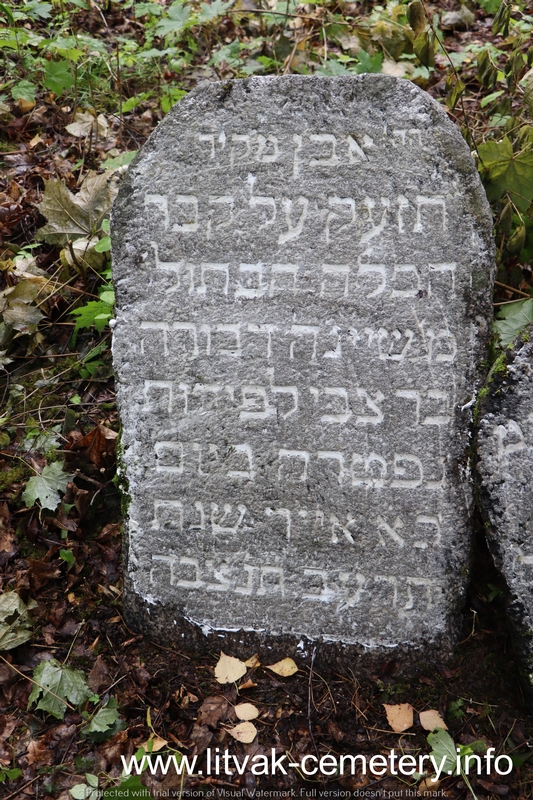 כי אבן מקיר
תזעק על קבר
הכלה הבתול'
מ שיינה דבורה
בר צבי לפידות
נפטרה ביום
כא אייר שנת
תרעב תנצבה
www.litvak-cemetery.info
Protected with trial version of Visual Watermark. Full version doesn't put this mark.